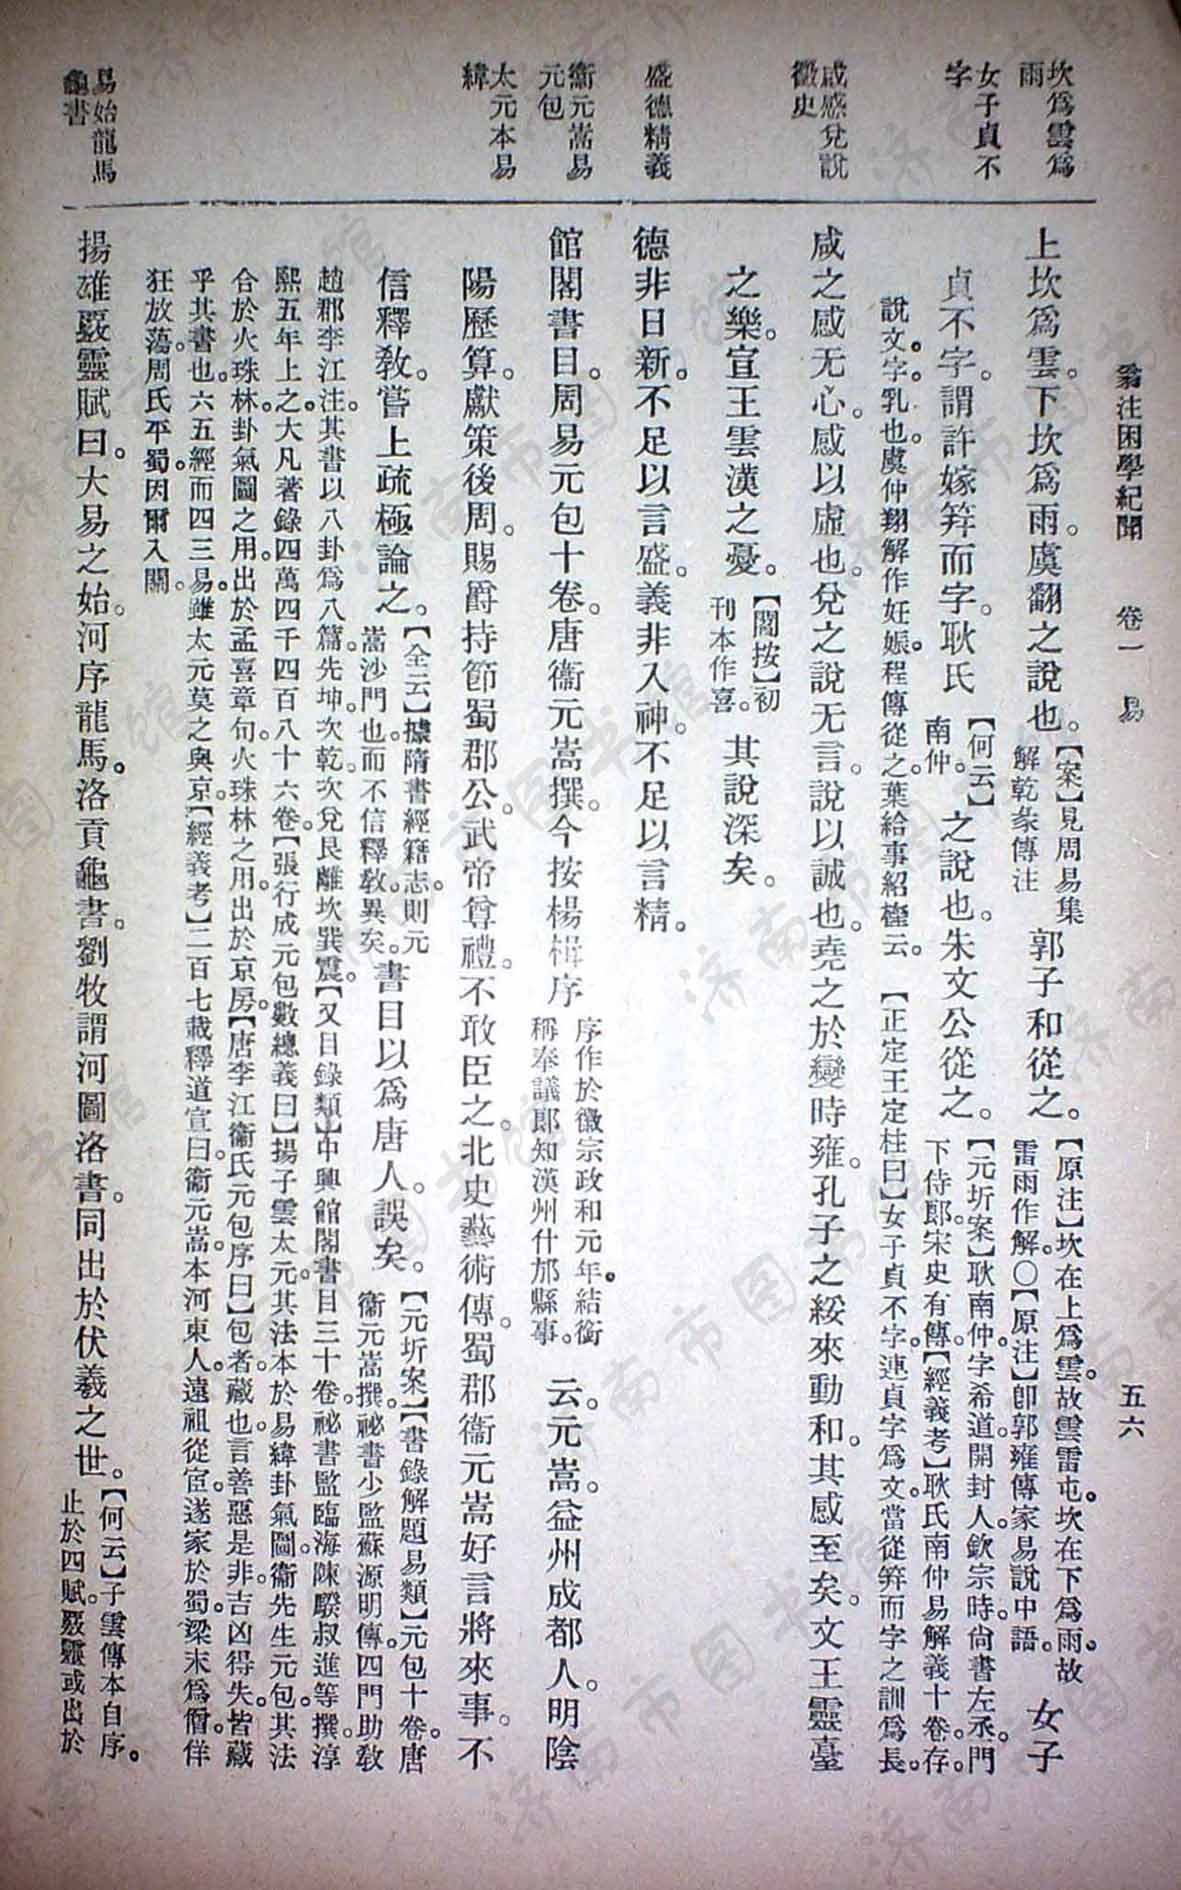 翁注困學紀聞 卷一 易 五六
坎爲雲爲
雨
女子貞不
字
咸感兌說
徵史
盛德精義
衞元嵩易
元包
太元本易
緯
易始龍馬
龜書
上坎爲雲。下坎爲雨。虞翻之說也。【案】見周易集解乾彖傳注郭子和從之。【原注】坎在上爲雲。故雲雷屯。坎在下爲雨。故雷雨作解。〇【原注】卽郭雍傳家易說中語。女子
貞不字。謂許嫁筓而字。耿氏【何云】南仲。之說也。朱文公從之。【元圻案】耿南仲。字希道。開封人。欽宗時。尙書左丞。門下侍郎。宋史有傳。【經義考】耿氏南仲易解義十卷。存。
說文。字。乳也。虞仲翔解作妊娠。程傳從之。葉給事紹櫆云。【正定王定柱曰】女子貞不字。連貞字爲文。當從筓而字之訓爲長。
咸之感无心。感以虛也。兌之說无言。說以誠也。堯之於變時雍。孔子之綏來動和。其感至矣。文王靈臺
之樂。宣王雲漢之憂。【閻按】初刊本作喜。其說深矣。
德非日新。不足以言盛。義非入神。不足以言精。
館閣書目。周易元包十卷。唐衞元嵩撰。今按楊楫序序作於徽宗政和元年。結銜稱奉議郎知漢州什邡縣事。云。元嵩。益州成都人。明陰
陽歷算。獻策後周。賜爵持節蜀郡公。武帝尊禮。不敢臣之。北史藝術傳。蜀郡衞元嵩好言將來事。不
信釋教。嘗上疏極論之。【全云】據隋書經籍志。則元嵩沙門也。而不信釋教。異矣。書目以爲唐人。誤矣。【元圻案】【書錄解題易類】元包十卷。唐衞元嵩撰。祕書少監蘇源明傳。四門助敎
趙郡李江注。其書以八卦爲八篇。先坤。次乾。次兌艮離坎巽震。【又目錄類】中興館閣書目三十卷。祕書監臨海陳騤叔進等撰。淳
熙五年上之。大凡著錄四萬四千四百八十六卷。【張行成元包數總義曰】揚子雲太元。其法本於易緯卦氣圖。衞先生元包。其法
合於火珠林。卦氣圖之用。出於孟喜章句。火珠林之用。出於京房。【唐李江衞氏元包序曰】包者藏也。言善惡是非。吉凶得失。皆藏
乎其書也。六五經而四三易。雖太元莫之與京。【經義考】二百七載釋道宣曰。衞元嵩。本河東人。遠祖從宦。遂家於蜀。梁末爲僧。佯
狂放蕩。周氏平蜀。因爾入關。
揚雄覈靈賦曰。大易之始。河序龍馬。洛貢龜書。劉牧謂河圖洛書。同出於伏羲之世。【何云】子雲傳本自序。止於四賦。覈靈或出於